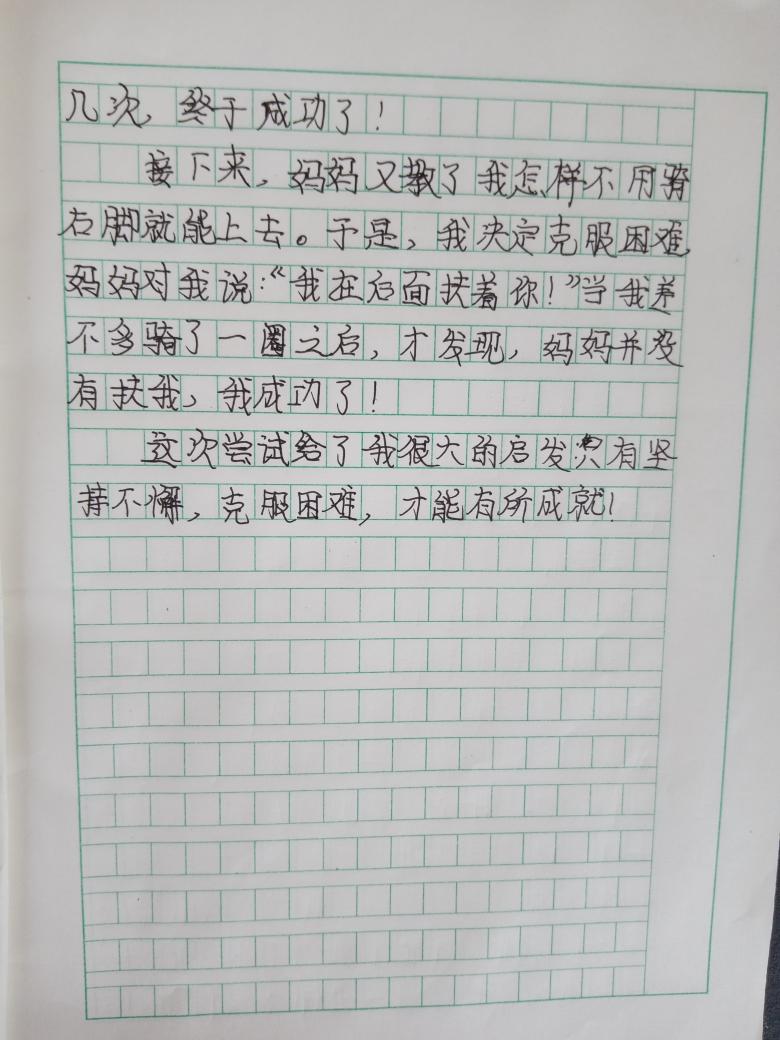 几次，终于成功了！
接下来，妈妈又教了我怎样不用骑
右脚就能上去。于是，我决定克服困难，
妈妈对我说：“我在后面扶着你！”当我差
不多骑了一圈之后，才发现，妈妈并没
有扶我，我成功了！
这次尝试给了我很大的启发：只有坚
持不懈，克服困难，才能有所成就！